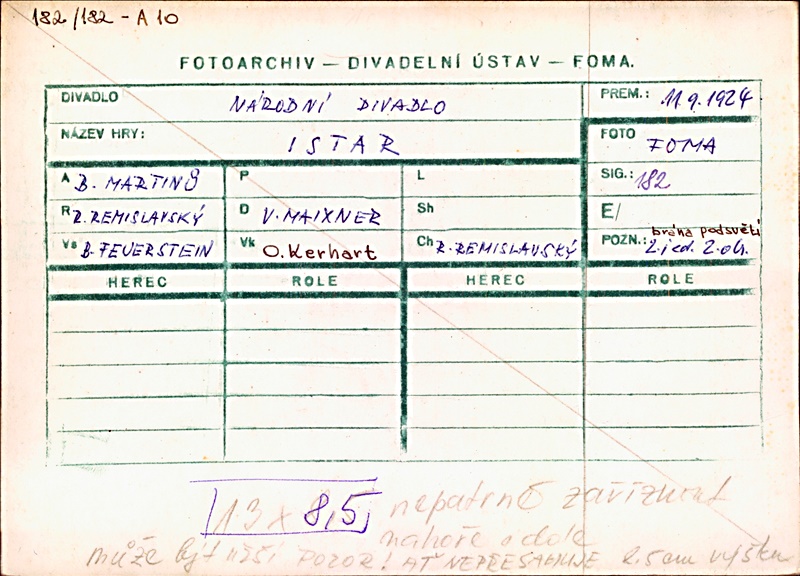 182/182 - A 10
FOTOARCHIV — DIVADELNÍ ÚSTAV — FOMA.
DIVADLO NÁRODNÍ DIVADLO PREM.: 11 9. 1924
NÁZEV HRY: ISTAR FOTO FOMA
A B. MARTINŮ P L SIG.: 182
R R. REMISLAVSKÝ D V. MAIXNER Sh E/
brána podsvětí
Vs B. FEUERSTEIN Vk O. Kerhart Ch R. REMISLAVSKÝ POZN.: 2. jed. 2. ob.
HEREC ROLE HEREC ROLE
13 x 8,5 nepatrně zaříznout
nahoře o dole
může být užší POZOR! AŤ NEPŘESAHUJE 8.5 cm výšku